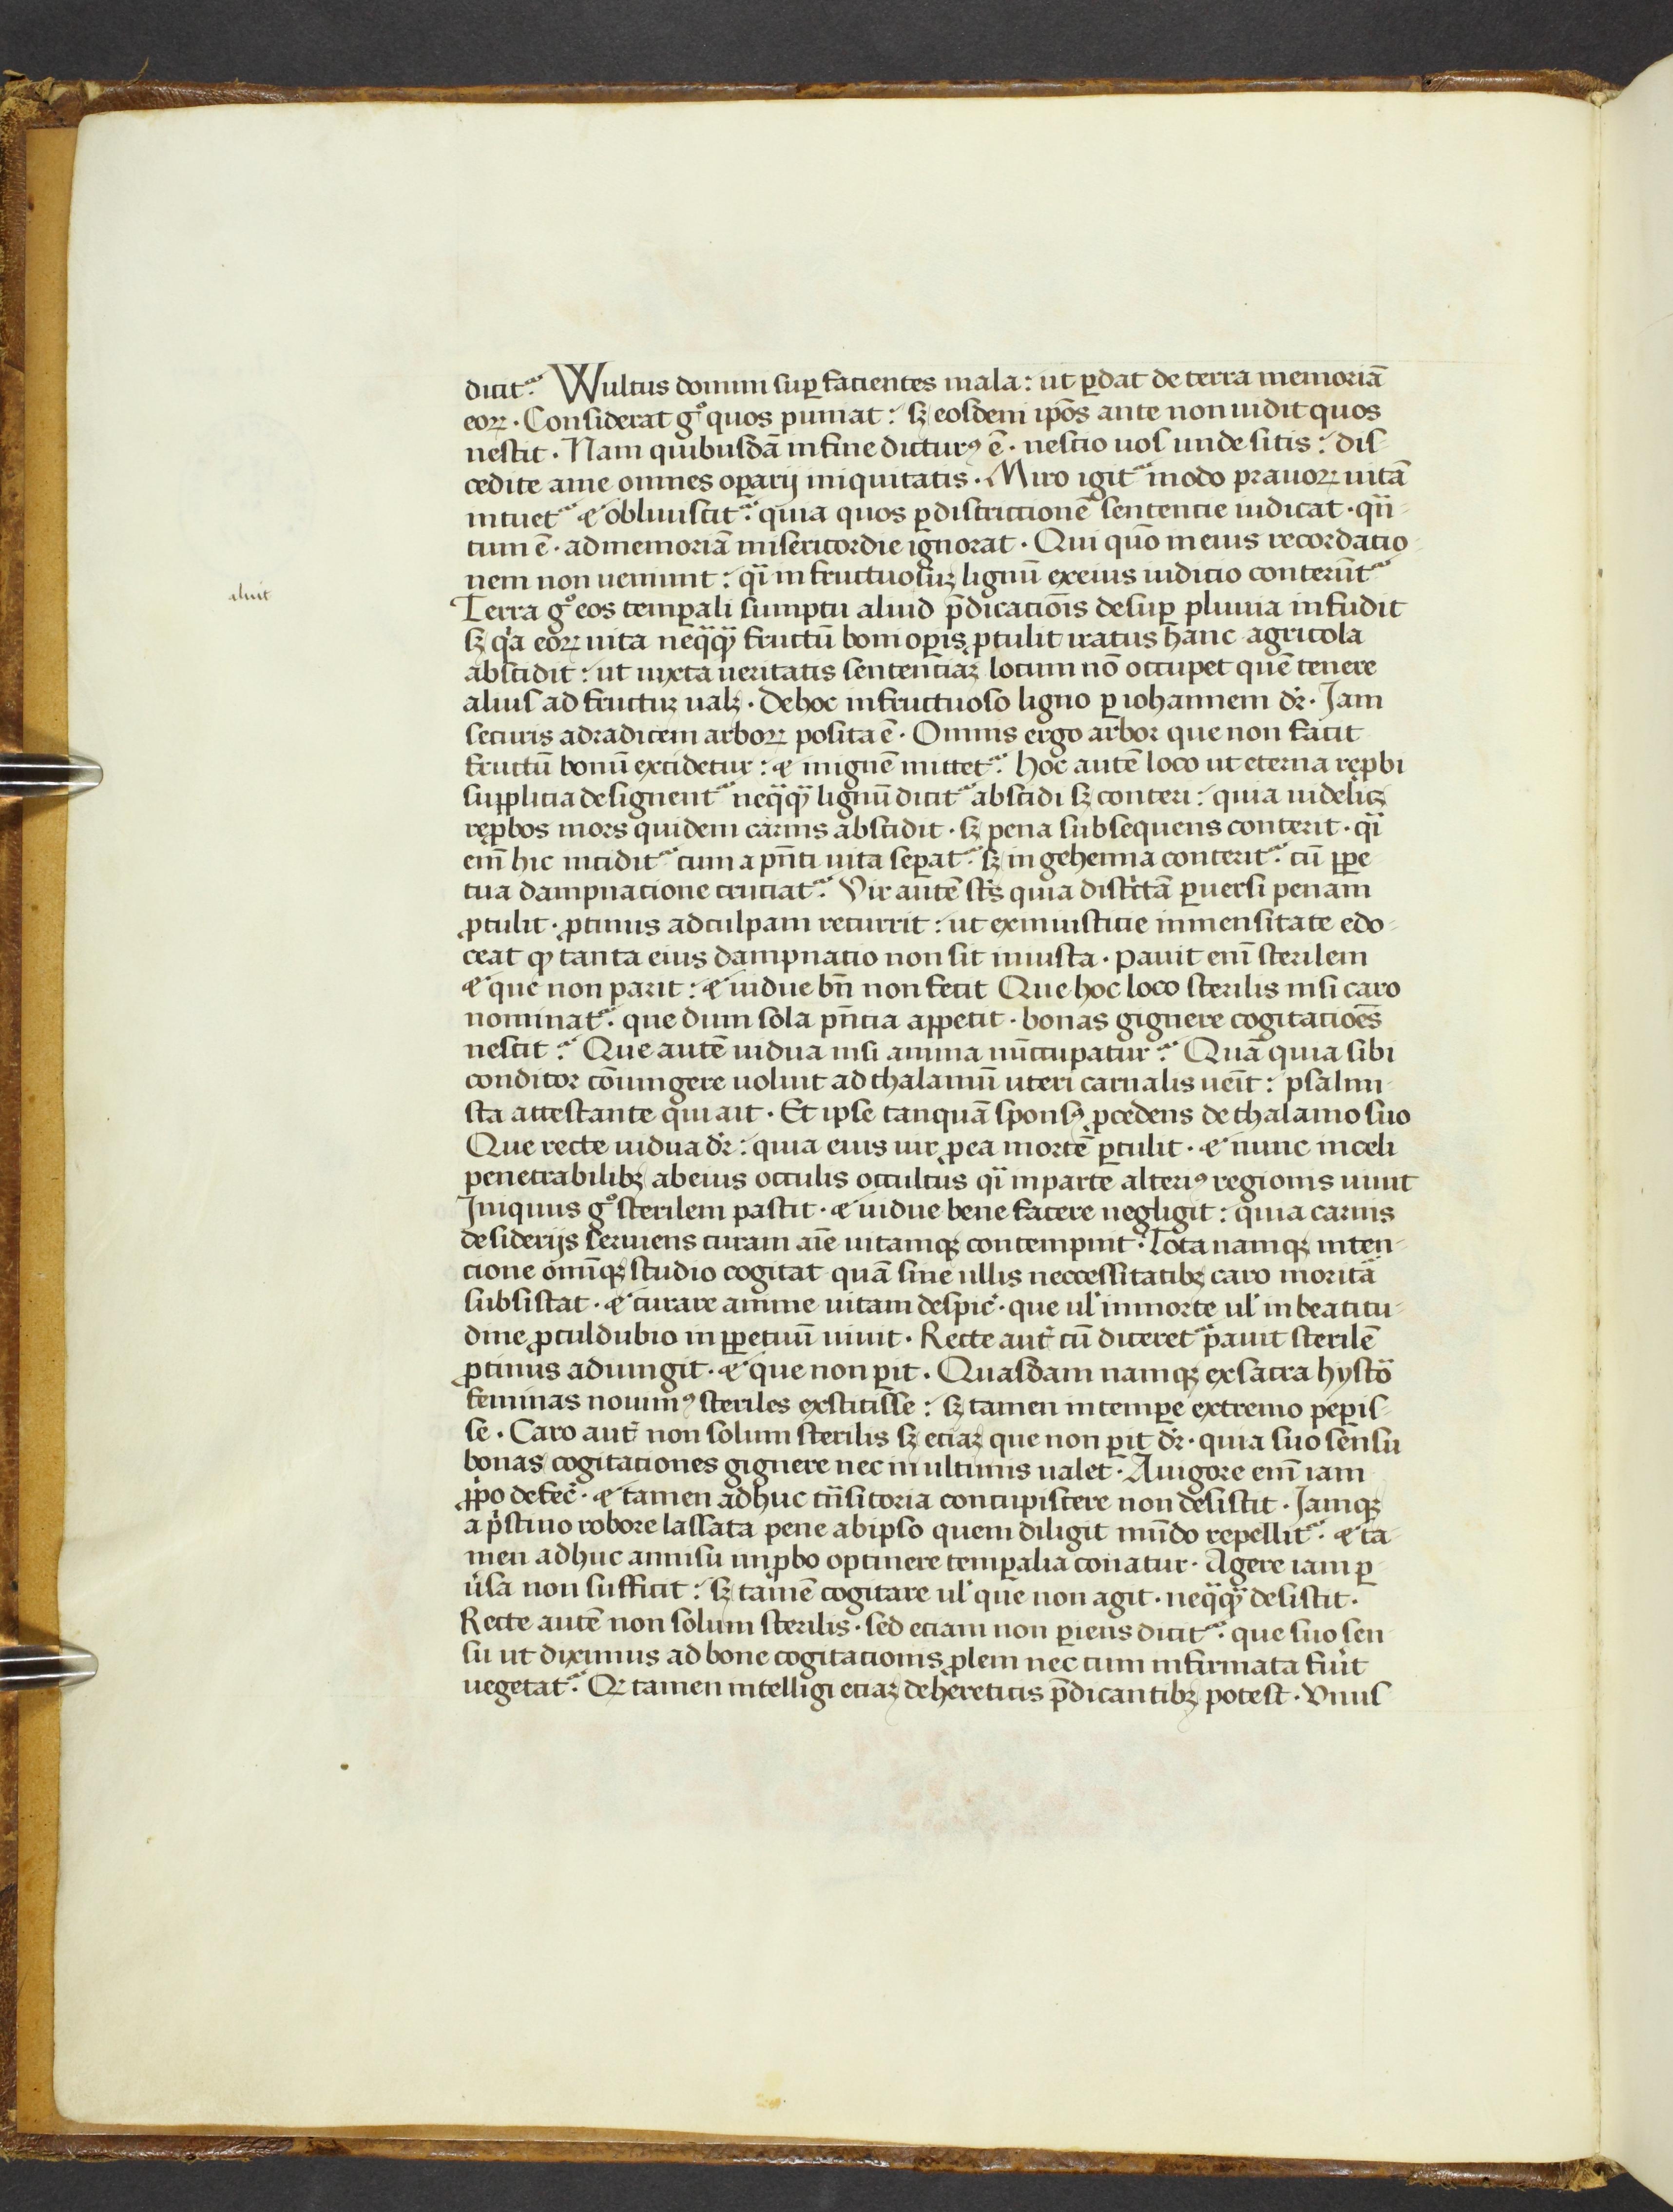 dicit᷑. Wultus domini suꝑ facientes mala: ut ꝑdat de terra memoriā
eoꝝ. Considerat gͦ quos puniat: sꝫ eosdem ip̄os ante non uidit quos
nescit. Nam quibusdā in fine dicturꝰ ē. nescio uos unde sitis: dis-
cedite ame omnes oꝑarij iniquitatis. Miro igit᷑ modo prauoꝝ uitā
intuet᷑ & obliuiscit᷑. quia quos ꝑ districtionē sentencie iudicat. qͣn-
tum ē. ad memoriā misericordie ignorat. Qui quō in eius recordatio-
nem non ueniunt: qͣi in fructuosuꝫ lignū ex eius iudicio conterūt᷑
Terra gͦ eos temꝑali sumptu aluid p̄dicatiōis desuꝑ pluuia infudit
sꝫ qͥa eoꝝ uita neqͣqͣꝫ fructū boni oꝑis ꝓtulit iratus hanc agricola
abscidit: ut iuxta ueritatis sentenciaꝫ locum nō occupet quē tenere
alius ad fructuꝫ ualꝫ. De hoc infructuoso ligno ꝑ iohannem dr̄. Jam
securis ad radicem arboꝝ posita ē. Omnis ergo arbor que non facit
fructū bonū excidetur: & in ignē mittet᷑. hoc autē loco ut eterna reꝓbi
supplicia designent᷑ neqͣqͣꝫ lignū dicit᷑ abscidi sꝫ conteri: quia uidelicꝫ
reꝓbos mors quidem carnis abscidit. sꝫ pena subsequens conterit. qͣi
em̄ hic incidit᷑ cum a pn̄ti uita seꝑat᷑. sꝫ in gehenna conterit᷑. cū ꝑpe-
tua dampnacione cruciat᷑. Vir autē scs̄ quia districtā ꝑuersi penam
ꝓtulit. ꝓtinus ad culpam recurrit: ut ex iniusticie inmensitate edo-
ceat ꝙ tanta eius dampnatio non sit iniusta. Pauit eni᷑ sterilem
& que non parit: & uidue bn̄ non fecit Que hoc loco sterilis nisi caro
nominat᷑. que dum sola pn̄cia appetit. bonas gignere cogitacioēs
nescit᷑. Que autē uidua nisi anima nūccupatur᷑. Quā quia sibi
conditor cōiungere uoluit ad thalamū uteri carnalis ueīt: psalmi-
sta attestante qui ait. Et ipse tanquā sponsꝰ ꝓcedens de thalamo suo
Que recte uidua dr̄: quia eius uir ꝓ ea mortē ꝑtulit. & nunc in celi
penetrabilibꝫ ab eius occulis occultus qͣi in parte alteriꝰ regionis uiuit
Iniquus gͦ sterilem pascit. & uidue bene facere negligit: quia carnis
desiderijs seruiens curam aīe uitamqꝫ contempnit. Tota namqꝫ inten-
cione omīqꝫ studio cogitat quā sine ullis neccessitatibꝫ caro moritā
subsistat. & curare anime uitam despic̄. que ul̛ in morte ul̛ in beatitu-
dine ꝓculdubio in ꝑpetuū uiuit. Recte aut̄ cū diceret᷑ pauit sterilē
ꝓtinus adiungit. & que non ꝑit. Quasdam namqꝫ ex sacra hystō
feminas nouimꝰ steriles exstitisse: sꝫ tamen in temꝑe extremo peꝑis-
se. Caro aut̄ non solum sterilis sꝫ eciaꝫ que non ꝑit dr̄. quia suo sensu
bonas cogitaciones gignere nec in ultimis ualet. A uigore eni᷑ iam
ꝓpͥo defec̄. & tamen adhuc tͣnsitoria concupiscere non desistit. Jamqꝫ
a pͥstino robore lassata pene ab ipso quem diligit mūdo repellit᷑. & ta-
men adhuc annisu inꝓbo optinere temꝑalia conatur. Agere iam ꝑ-
u̾sa non sufficit: sꝫ tamē cogitare ul̛ que non agit. neqͣqͣꝫ desistit.
Recte autē non solum sterilis. sed eciam non ꝑiens dicit᷑. que suo sen
su ut diximus ad bone cogitacionis ꝓlem nec cum infirmata fu̾it
uegetat᷑. Qꝫ tamen intelligi eciaꝫ de hereticis p̄dicantibꝫ potest. Vnus
aluit